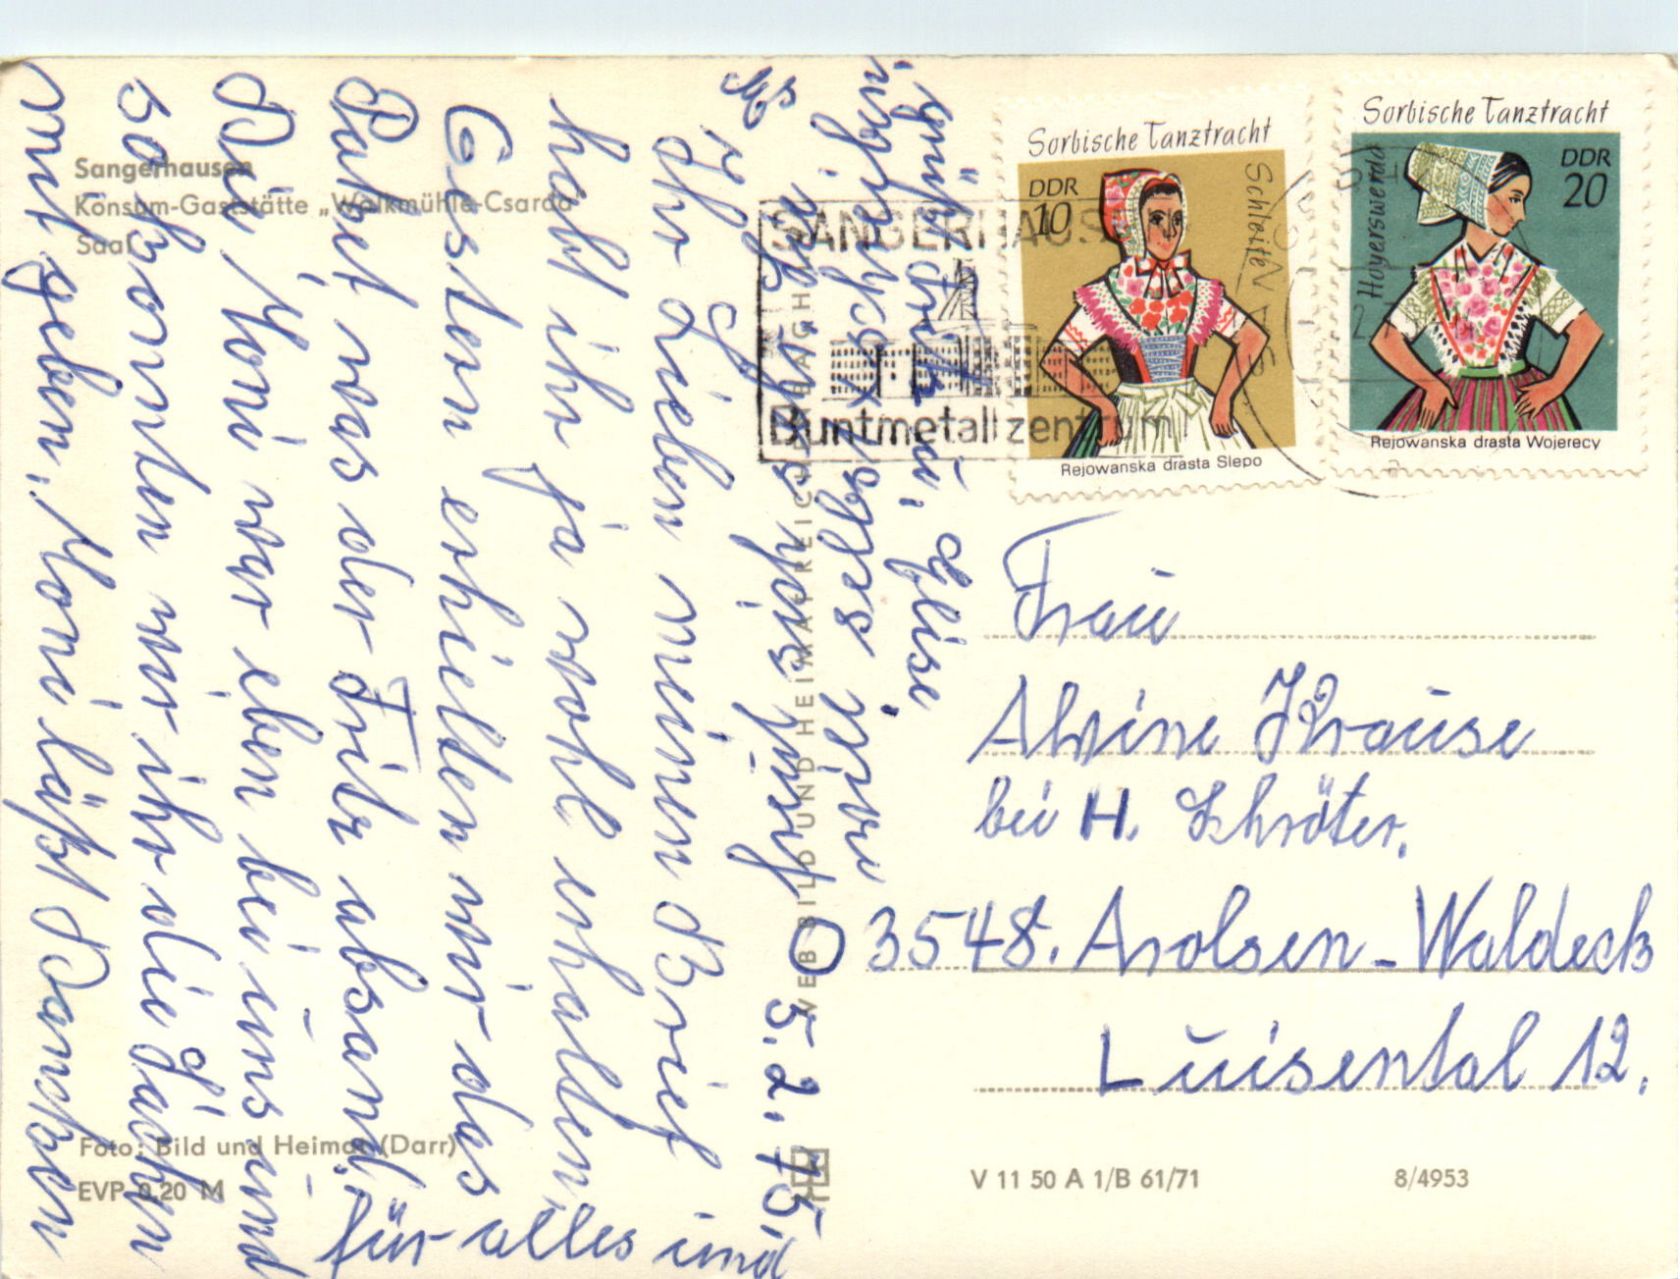 Sangerhausen
Konsum-Gaststätte „Walkmühle-Csarda"
Saal
Foto: Bild und Heimat (Darr)
EVP 0,20 M
VEB BILD UND HEIMAT REICHENBACH
V 11 50 A 1/B 61/71
8/4953
Sorbische Tanztracht
DDR
10
Schleife
Rejowanska drasta Slepo
Sorbische Tanztracht
DDR
20
Hoyerswerda
Rejowanska drasta Wojerecy
SANGERHAUSEN
Buntmetallzentrum
5.2.75.
Ihr Lieben meinen Brief
habt ihr ja wohl erhalten,
Gestern erhielten wir das
Paket was der Fritz absand.
Du, Moni war eben bei uns und
so konnten wir ihr die Sachen
mit geben. Moni läßt Danken
für alles und
Frau
Alwine Krause
bei H. Schröter.
3548. Arolsen-Waldeck
Luisental 12.